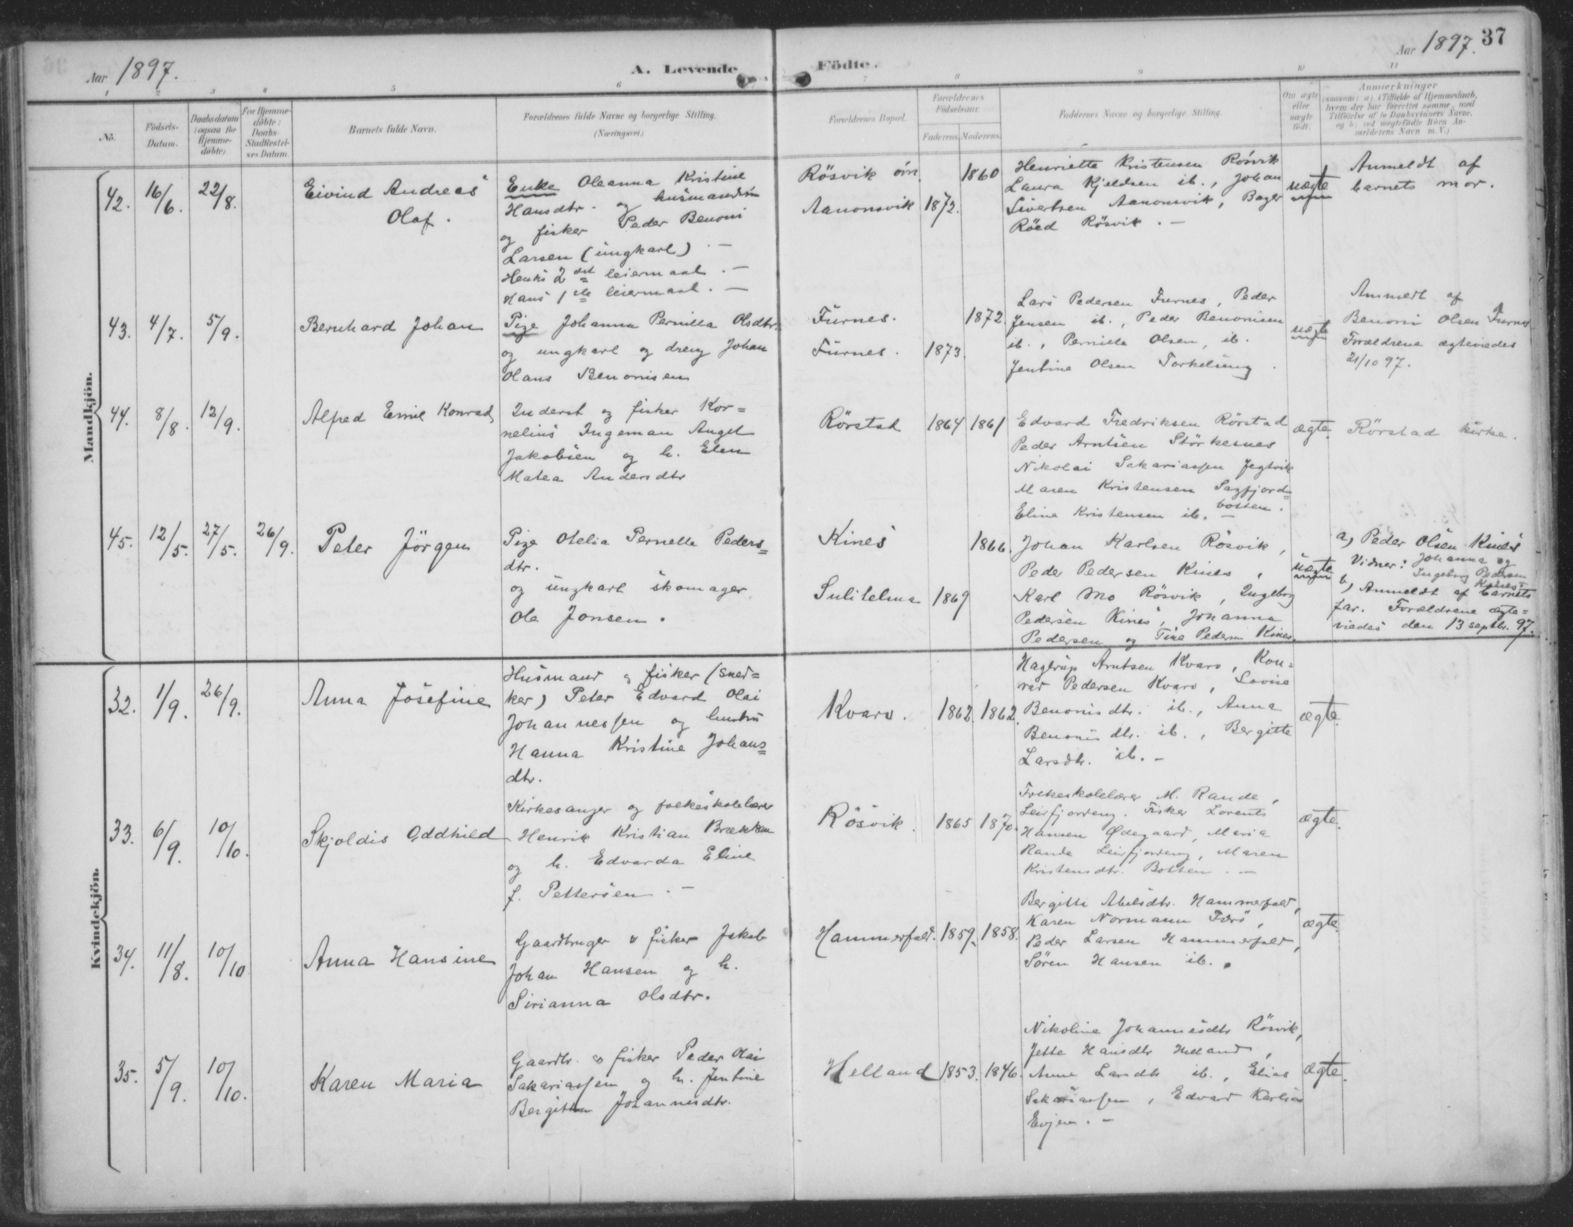 Aar 1897.
A. Levende
Födte.
Aar 1897.
37
No.
Födsels-Datum.
Daabsdatum (ogsaa for Hjemme-döbte)
For Hjemme-döbte: Daabs-Stadfæstel-ses Datum
Barnets fulde Navn.
Forældrenes fulde Navne og borgerlige Stilling. (Næringsvei)
Forældrenes Bopæl.
Forældrenes Födselsaar.
Faderens.
Moderens.
Faddernes Navne og borgerlige Stilling.
Om ægte eller uægte födt.
Anmærkninger
Mandkjön.
42. 16/6. 22/8.
Eivind Andreas
Olaf.
Enke Oleanna Kristine
Hansdtr. og husmandssön
og fisker Peder Benoni
Larsen (ungkarl). —
Hendes 2det leiermaal. —
Hans 1ste leiermaal. —
Rösvik övr. 1860
Aanonsvik 1872.
Henriette Kristensen Rösvik
Laura Kjeldsen ib., Johan
Sivertsen Aanonsvik, Bager
Röed Rösvik. —
uægte
Anmeldt af
barnets mor.
43. 4/7. 5/9.
Bernhard Johan
Pige Johanna Pernilla Olsdtr.
og ungkarl og dreng Johan
Hans Benonisen
Furnes. 1872.
Furnes. 1873.
Lars Pedersen Furnes, Peder
Jensen ib., Peder Benonisen
ib., Pernilla Olsen, ib.
Jentine Olsen Torkelseng.
uægte
Anmeldt af
Benoni Olsen Furnes
Forældrene ægteviedes
21/10 97.
44. 8/8. 12/9.
Alfred Emil Konrad
Inderst og fisker Kor=
nelius Ingeman Angel
Jakobsen og h. Elen
Matea Andersdtr
Rörstad 1864 1861
Edvard Fredriksen Rörstad
Peder Arntsen Störkesnes
Nikolai Sakariassen Jegtvik
Maren Kristensen Sagfjord=
botten.
Eline Kristensen ib. —
ægte.
Rörstad kirke.
45. 12/5. 27/5. 26/9.
Peter Jörgen
Pige Otelia Pernelle Peders=
dtr.
og ungkarl skomager
Ole Jonsen.
Kines 1866.
Sulitelma 1869
Johan Karlsen Rösvik,
Peder Pedersen Kines,
Karl Mo Rösvik, Ingeborg
Pedersen Kines, Johanna
Pedersen og Tine Pedersen Kines.
uægte
a) Peder Olsen Kines
Vidner: Johanna og
Ingeborg Pedersen
Kines
b) Anmeldt af barnets
far. Forældrene ægte=
viedes den 13 septbr. 97.
Kvindekjön.
32. 1/9. 26/9.
Anna Josefine
Husmand og fisker (sned=
ker) Peter Edvard Olai
Johannessen og hustru
Hanna Kristine Johans=
dtr.
Kvarv. 1862. 1862.
Hagerup Arntsen Kvarv, Kon=
rad Pedersen Kvarv, Lovise
Benonisdtr. ib., Anna
Benonisdtr. ib., Bergitte
Larsdtr. ib. —
ægte.
33. 6/9. 10/10.
Skjoldis Oddhild
Kirkesanger og folkeskolelærer
Henrik Kristian Brækkan
og h. Edvarda Eline
f. Pettersen. —
Rösvik. 1865 1870.
Folkeskolelærer M. Rande,
Leirfjorden, Fisker Lorents
Hansen Ødegaard, Maria
Rande Leirfjorden, Maren
Kristensdtr. Botten. —
ægte.
34. 11/8. 10/10
Anna Hansine
Gaardbruger & fisker Jakob
Johan Hansen og h.
Sirianna Olsdtr.
Hammerfald. 1859. 1858.
Bergitte Abelsdtr. Hammerfald,
Karen Normann Förö,
Peder Larsen Hammerfald,
Sören Hansen ib.
ægte.
35. 5/9. 10/10.
Karen Maria
Gaardbr. & fisker Peder Olai
Sakariassen og h. Jentine
Bergitta Johannesdtr.
Helland 1853. 1846.
Nikoline Johannesdtr Rösvik,
Jette Hansdtr Helland,
Anne Larsdtr ib., Elias
Sakariassen, Edvard Karlsen
Evjen. —
ægte.